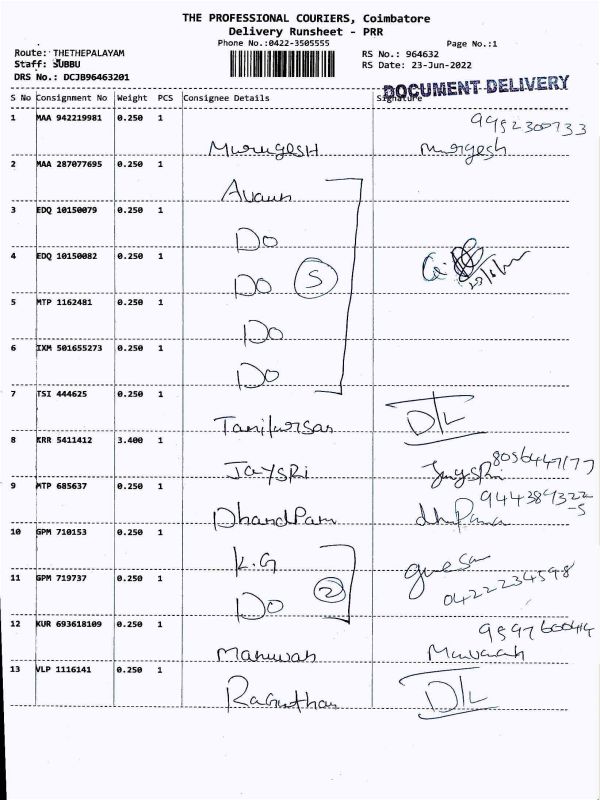 THE PROFESSIONAL COURIERS, Coimbatore
Delivery Runsheet - PRR
Phone No.:0422-3505555
Page No.:1
Route: THETHEPALAYAM
RS No.: 964632
Staff: SUBBU
RS Date: 23-Jun-2022
DRS No.: DCJB96463201
DOCUMENT DELIVERY
S No Consignment No Weight PCS Consignee Details Signature
1 MAA 942219981 0.250 1
Murugesh murgesh
2 MAA 287077695 0.250 1
3 EDQ 10150079 0.250 1
Do
4 EDQ 10150082 0.250 1
Do 5
5 MTP 1162481 0.250 1
Do
6 IXM 501655273 0.250 1
Do
7 TSI 444625 0.250 1
D/L
8 KRR 5411412 3.400 1
8056447177
JaysRi JaysRi
9 MTP 685637 0.250 1
DhandPani
10 GPM 710153 0.250 1
K.G
11 GPM 719737 0.250 1
04222234598
Do 2
12 KUR 693618109 0.250 1
13 VLP 1116141 0.250 1
D/L